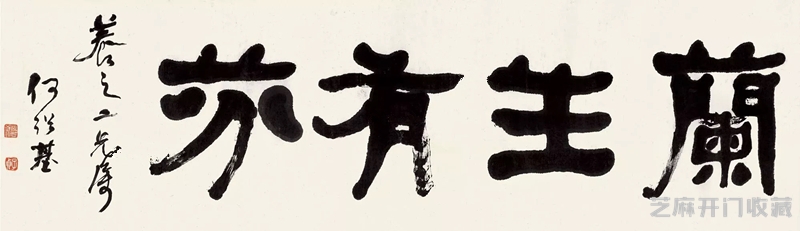 蘭生有芬
養之二兄屬
何紹基
芝麻开门收藏